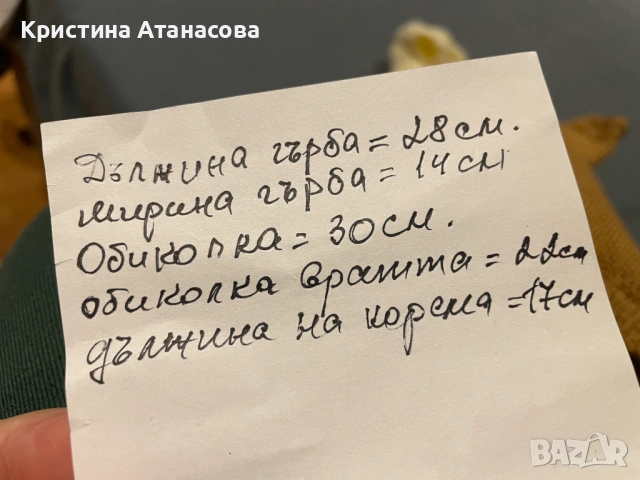 Кристина Атанасова
Дължина гърба = 28 см.
ширина гърба = 14 см
Обиколка = 30 см.
обиколка вратта = 22см
дължина на корема = 17 см
BAZAR